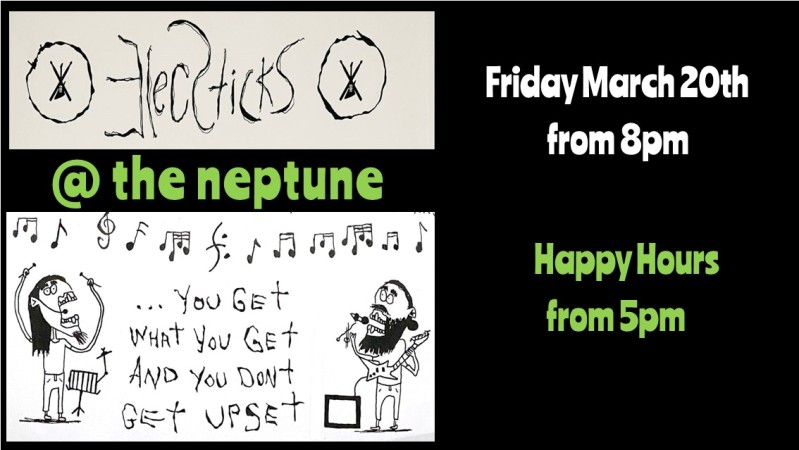 ElecSticks
@ the neptune
... YOU GET
WHAT YOU GET
AND YOU DON'T
GET UPSET
Friday March 20th
from 8pm
Happy Hours
from 5pm